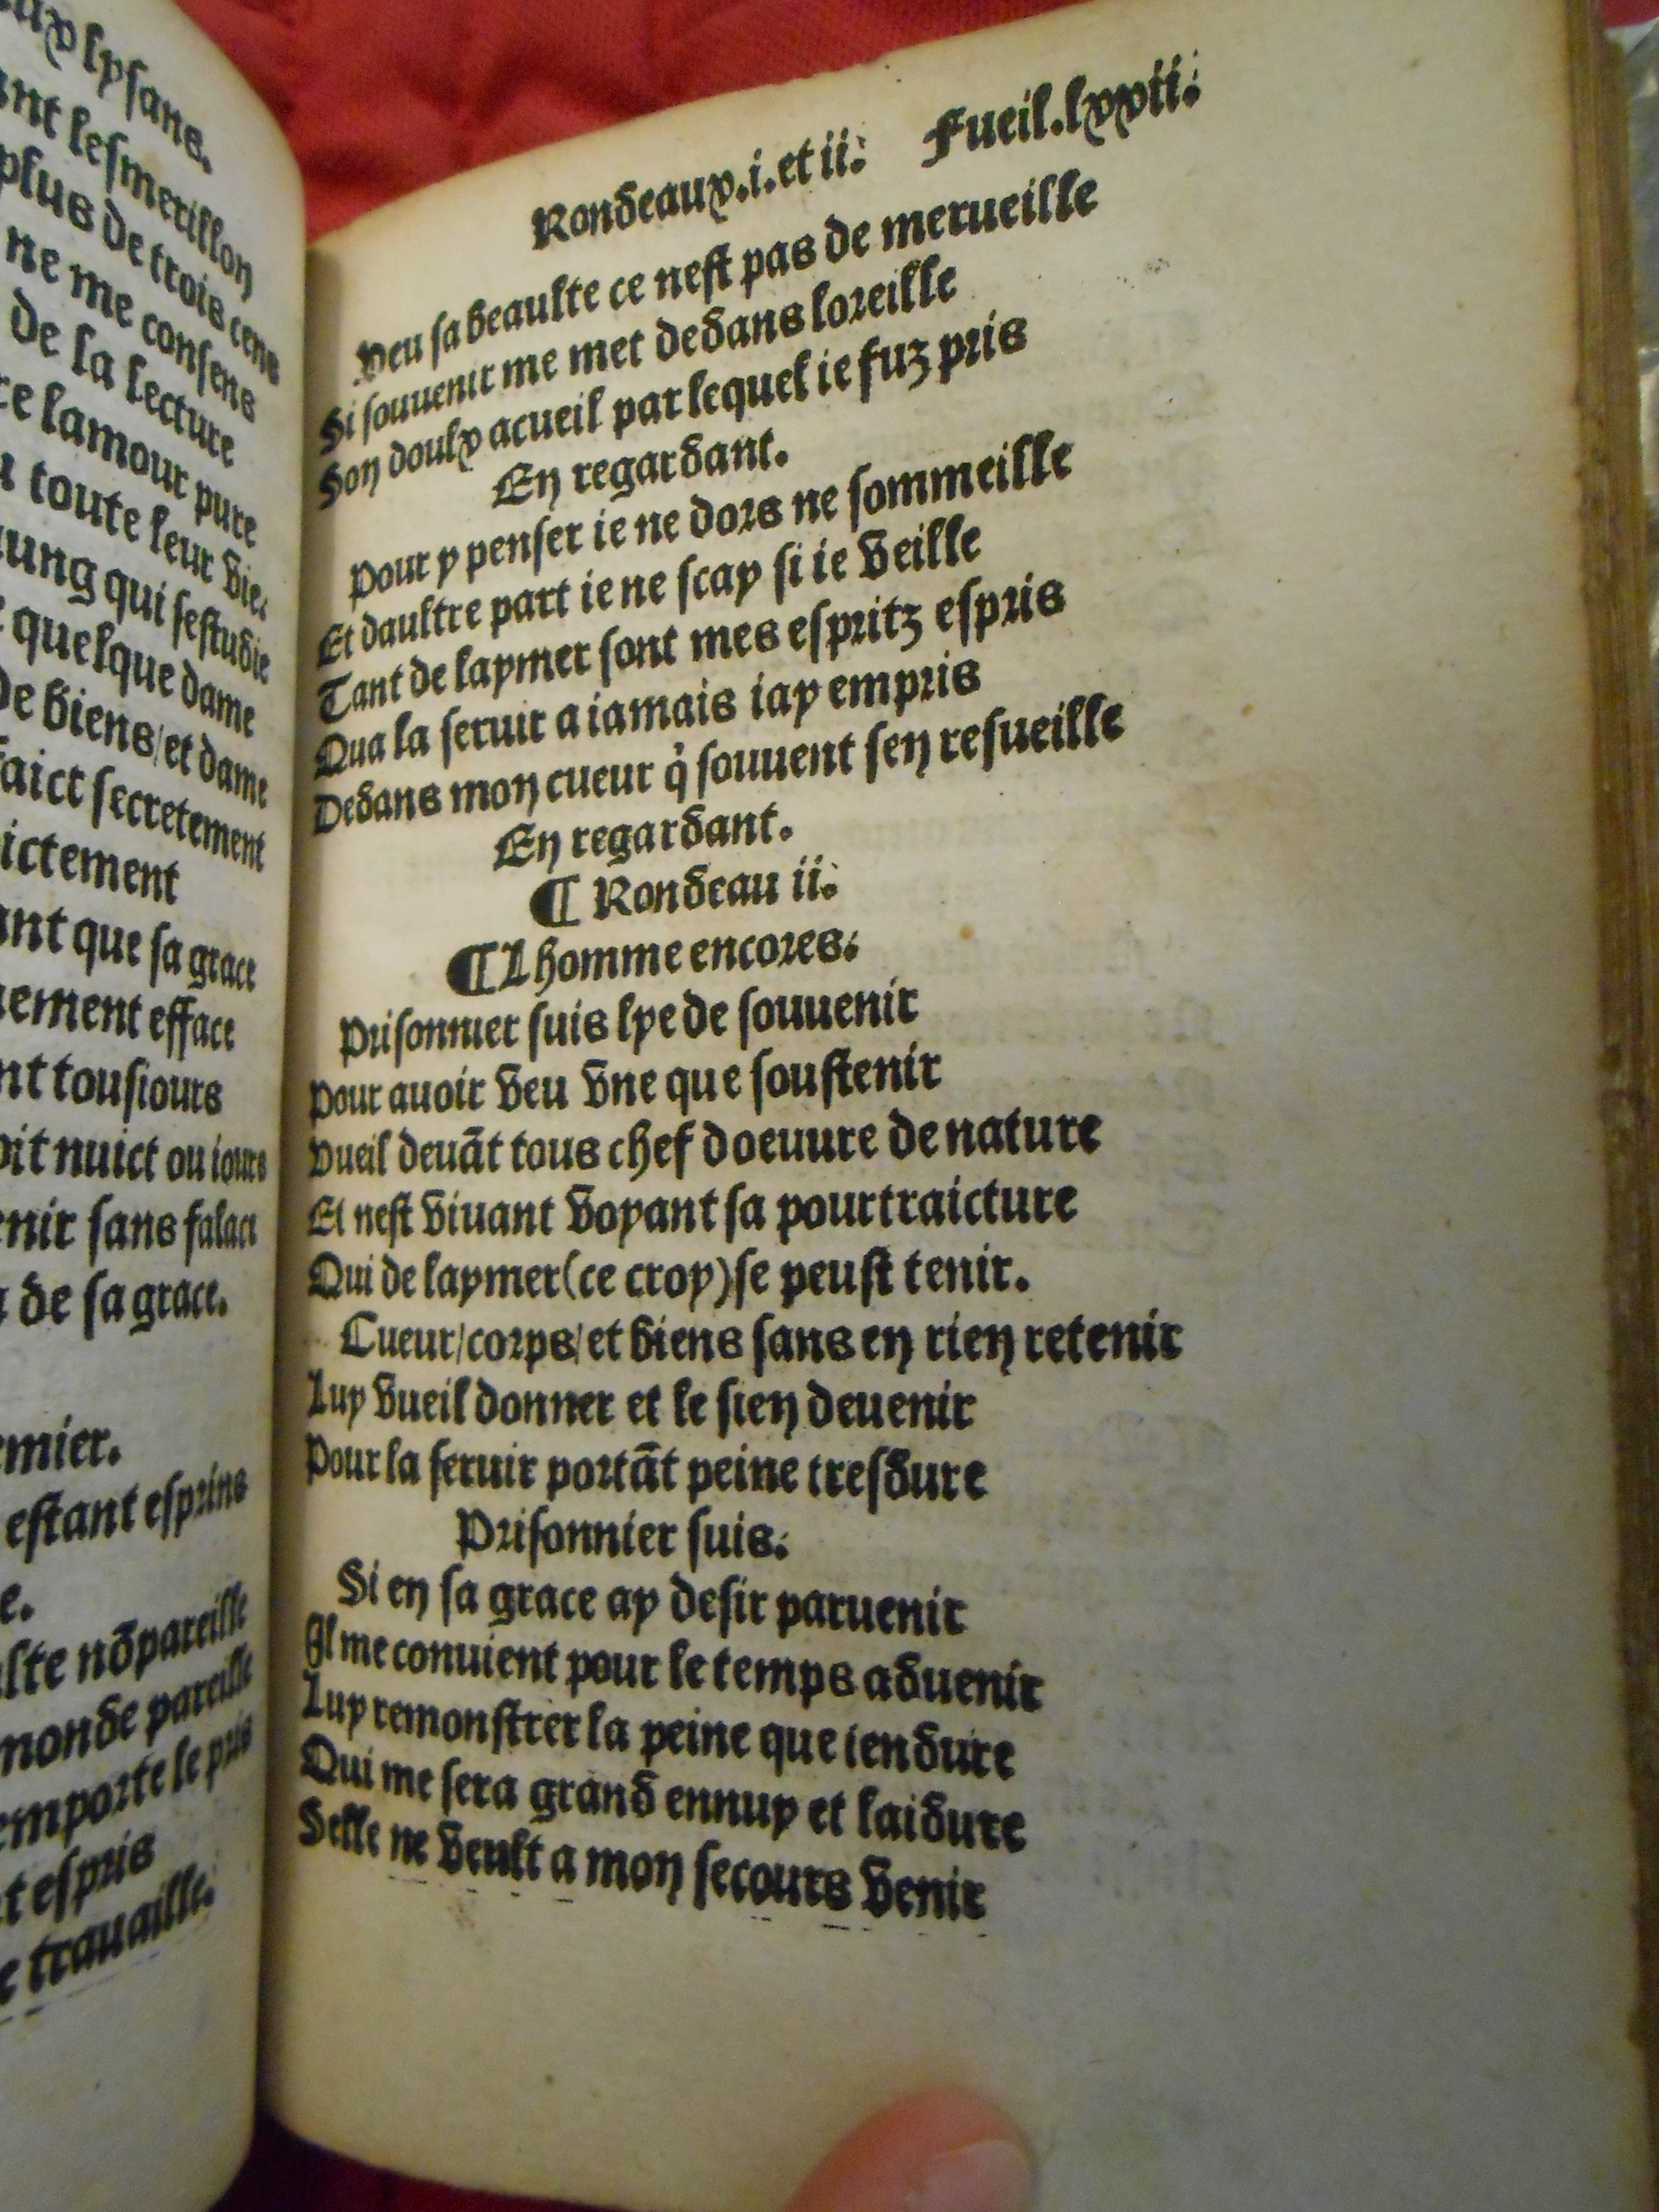 uy lysans.
ant lesmerillon
plus de trois cens
ne me consens
de la lecture
re lamour pure
toute leur vie.
ung qui sestudie
quelque dame
de biens/et dame
faict secretement
ictement
ant que sa grace
ement efface
nt tousiours
oit nuict ou iours
enir sans falace
de sa grace.
emier.
estant esprins
e.
lte nōpareille
monde pareille
emporte le pris
t espris
e trauaille.
Rondeaux.i.et ii. Fueil.lxxii.
Veu sa beaulte ce nest pas de merueille
Si souuenir me met dedans loreille
Son doulx acueil par lequel ie fuz pris
En regardant.
Pour y penser ie ne dors ne sommeille
Et daultre part ie ne scay si ie veille
Tant de laymer sont mes espritz espris
Qua la seruir a iamais iay empris
Dedans mon cueur q̇ souuent sen resueille
En regardant.
¶ Rondeau ii.
¶ Lhomme encores.
Prisonnier suis lye de souuenir
Pour auoir veu vne que soustenir
Vueil deuāt tous chef doeuure de nature
Et nest viuant voyant sa pourtraicture
Qui de laymer(ce croy)se peust tenir.
Cueur/corps/et biens sans en rien retenir
Luy vueil donner et le sien deuenir
Pour la seruir portāt peine tresdure
Prisonnier suis.
Si en sa grace ay desir paruenir
Il me conuient pour le temps aduenir
Luy remonstrer la peine que iendure
Qui me sera grand ennuy et laidure
Selle ne veult a mon secours venir